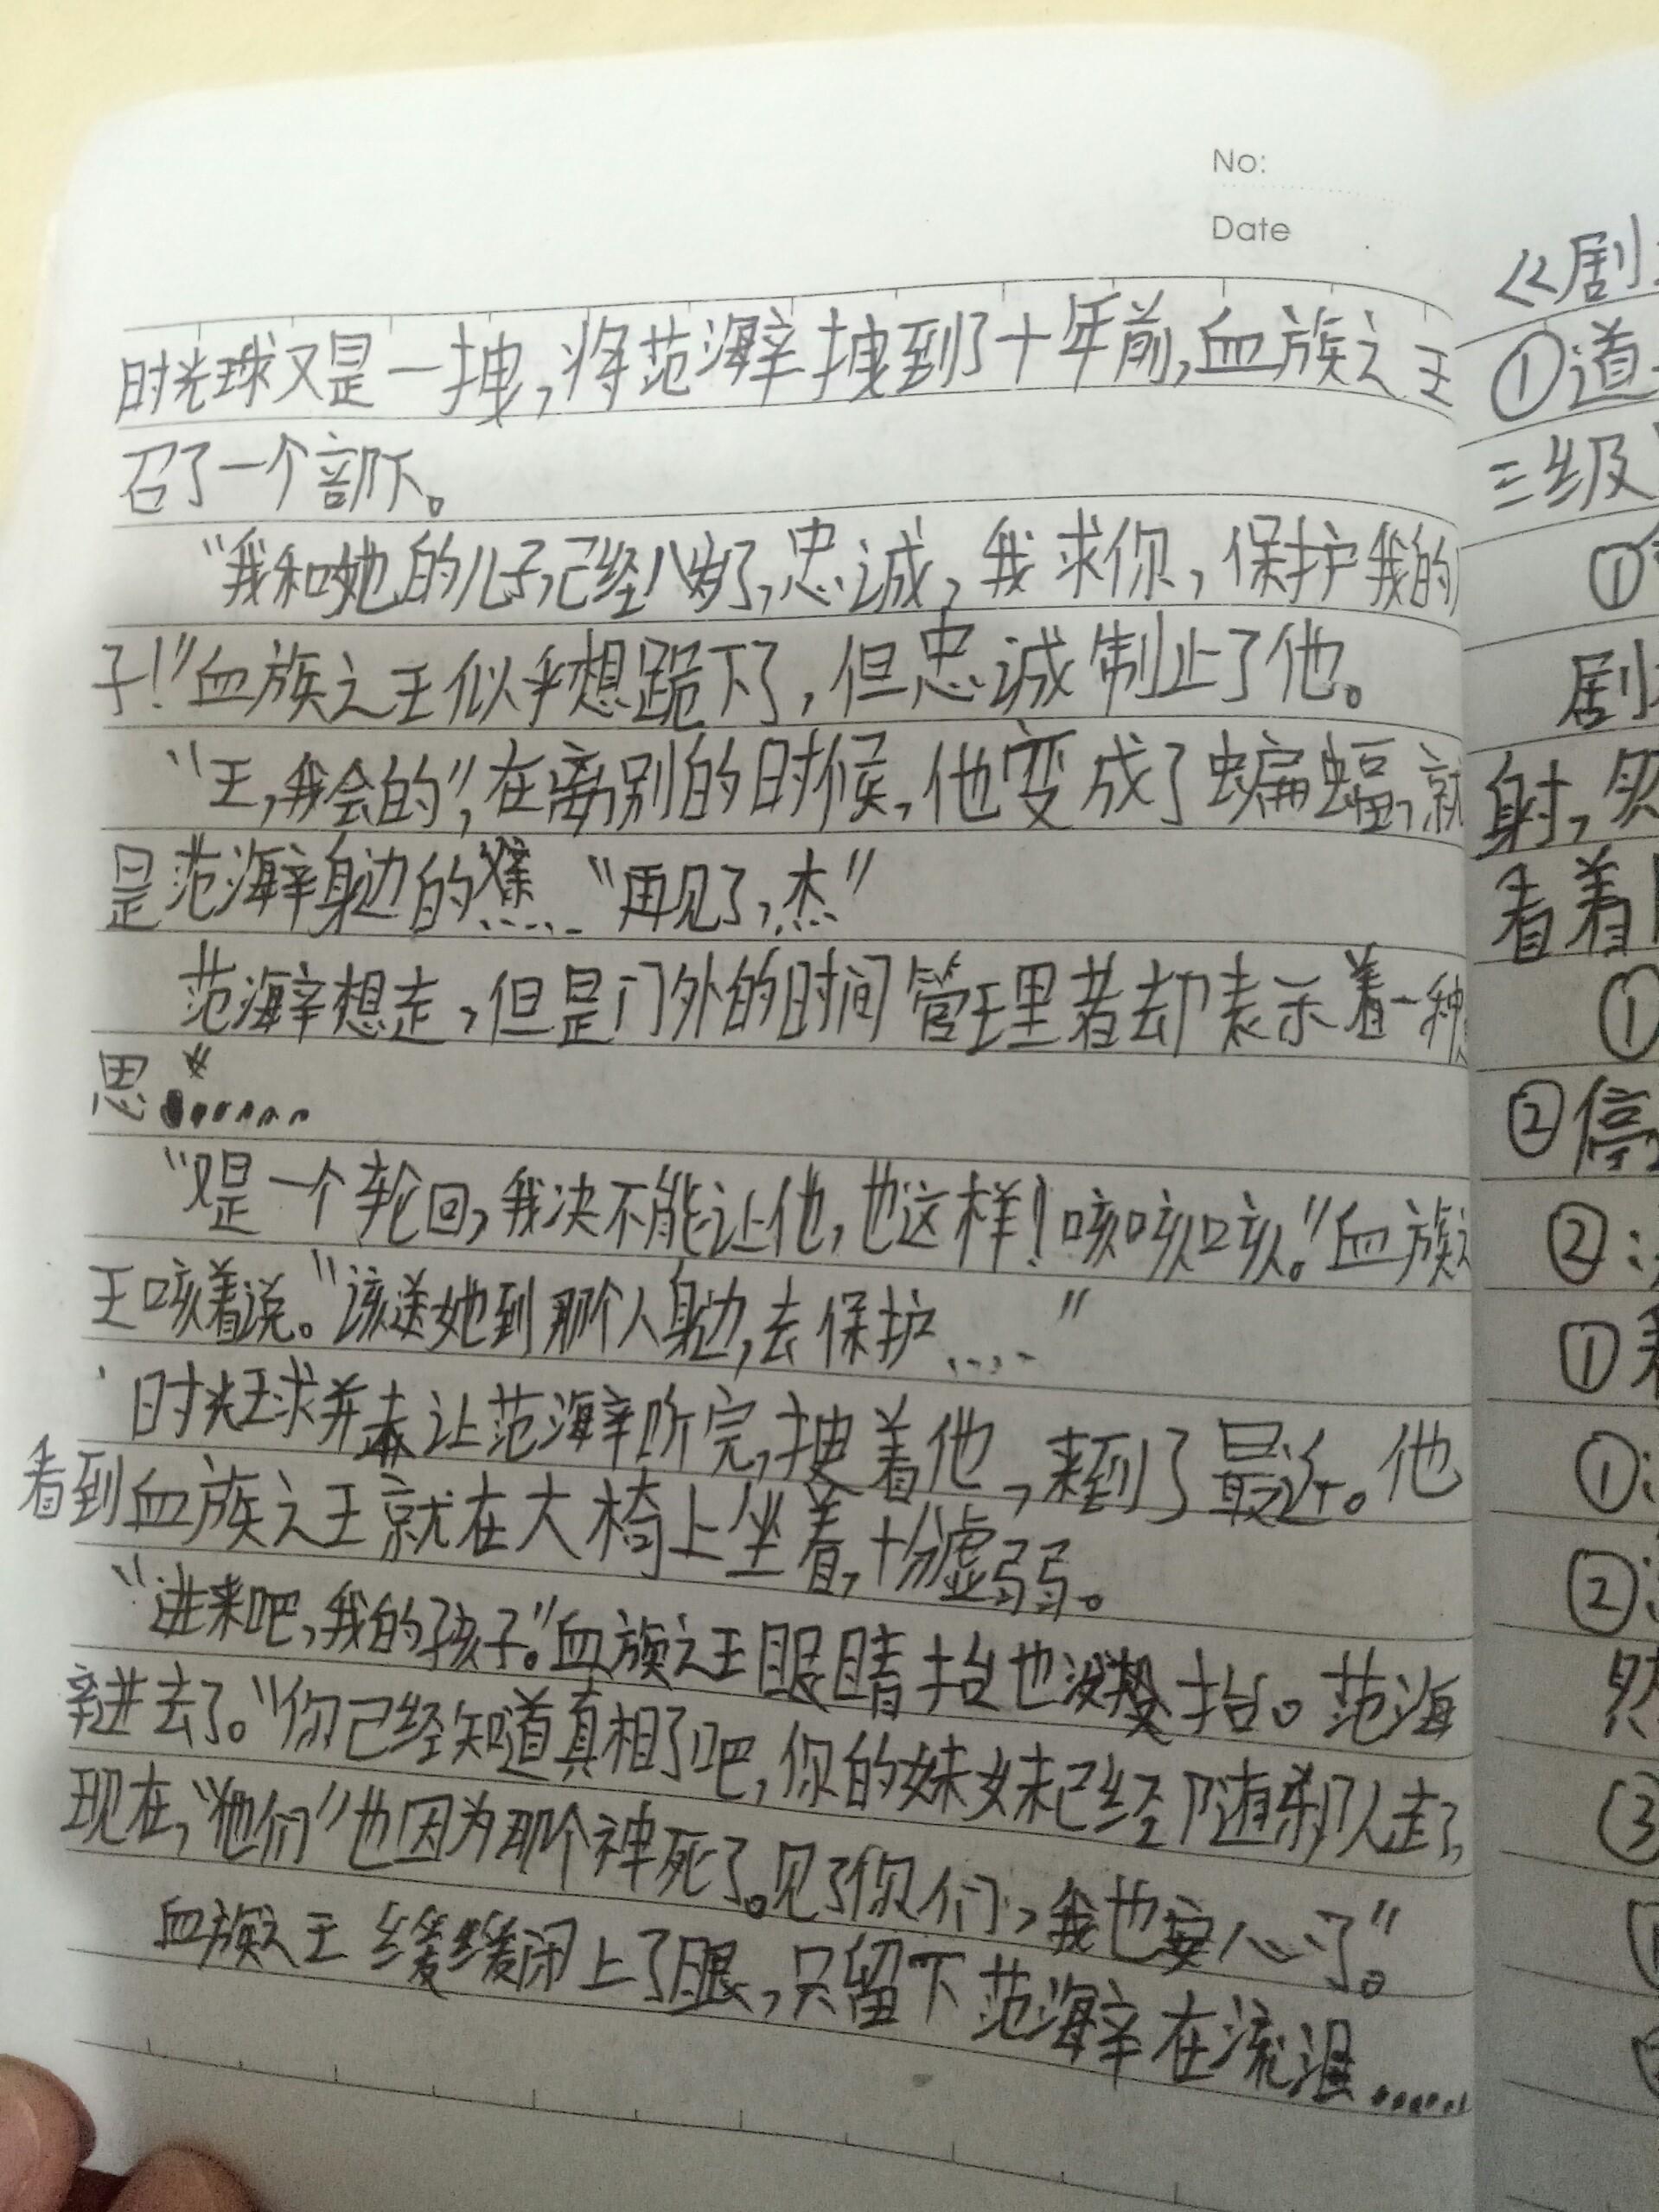 No:
Date
时光球又是一拽,将范海辛拽到了十年前,血族之王
召了一个部下。
“我和她的儿子,已经八岁了,忠诚,我求你,保护我的
子!”血族之王似乎想跪下了,但忠诚制止了他。
“王,我会的”,在离别的时候,他变成了蝙蝠,就
是范海辛身边的 …… “再见了,杰”
范海辛想走,但是门外的时间管理者却表示着一种
思 ……
“又是一个轮回,我决不能让他,也这样!咳咳咳。”血族之
王咳着说。“该送她到那个人身边,去保护……”
时光球并未让范海辛听完,拽着他,来到了最近。他
看到血族之王就在大椅上坐着,十分虚弱。
“进来吧,我的孩子。”血族之王眼睛抬也没 抬。范海
辛进去了。“你已经知道真相了吧,你的妹妹已经随 队走了,
现在,“他们”也因为那个神死了。见了你们,我也安心了。”
血族之王缓缓闭上了眼,只留下范海辛在流泪……
《剧
①道
三级
①
剧
射,
看着
①
②停
②:
①看
①:
②:
然
③